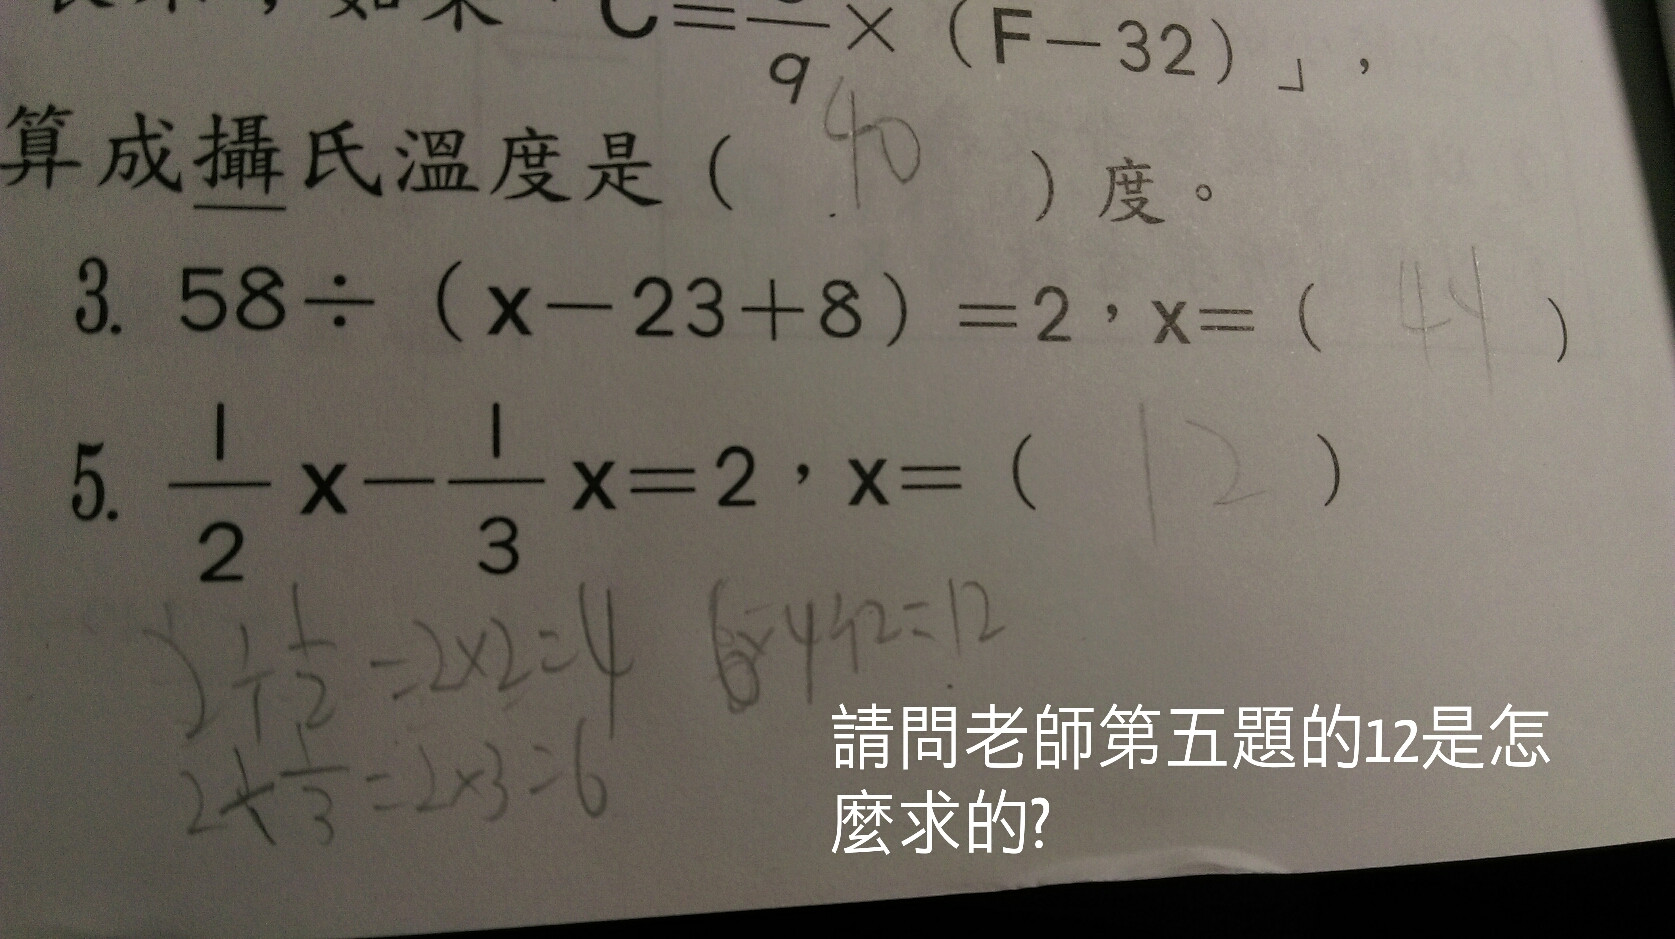 如果「C=9×（F－32）」，
算成攝氏溫度是（ 40 ）度。
3. 58÷（x－23＋8）=2，x=（ 44 ）
5. 1/2 x－1/3 x=2，x=（ 12 ）
2÷1/2=2×2=4 6×4÷2=12
2÷1/3=2×3=6
請問老師第五題的12是怎
麼求的?